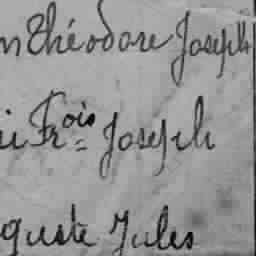 n Théodore Joseph
i Fr^ois= Joseph
guste Jules